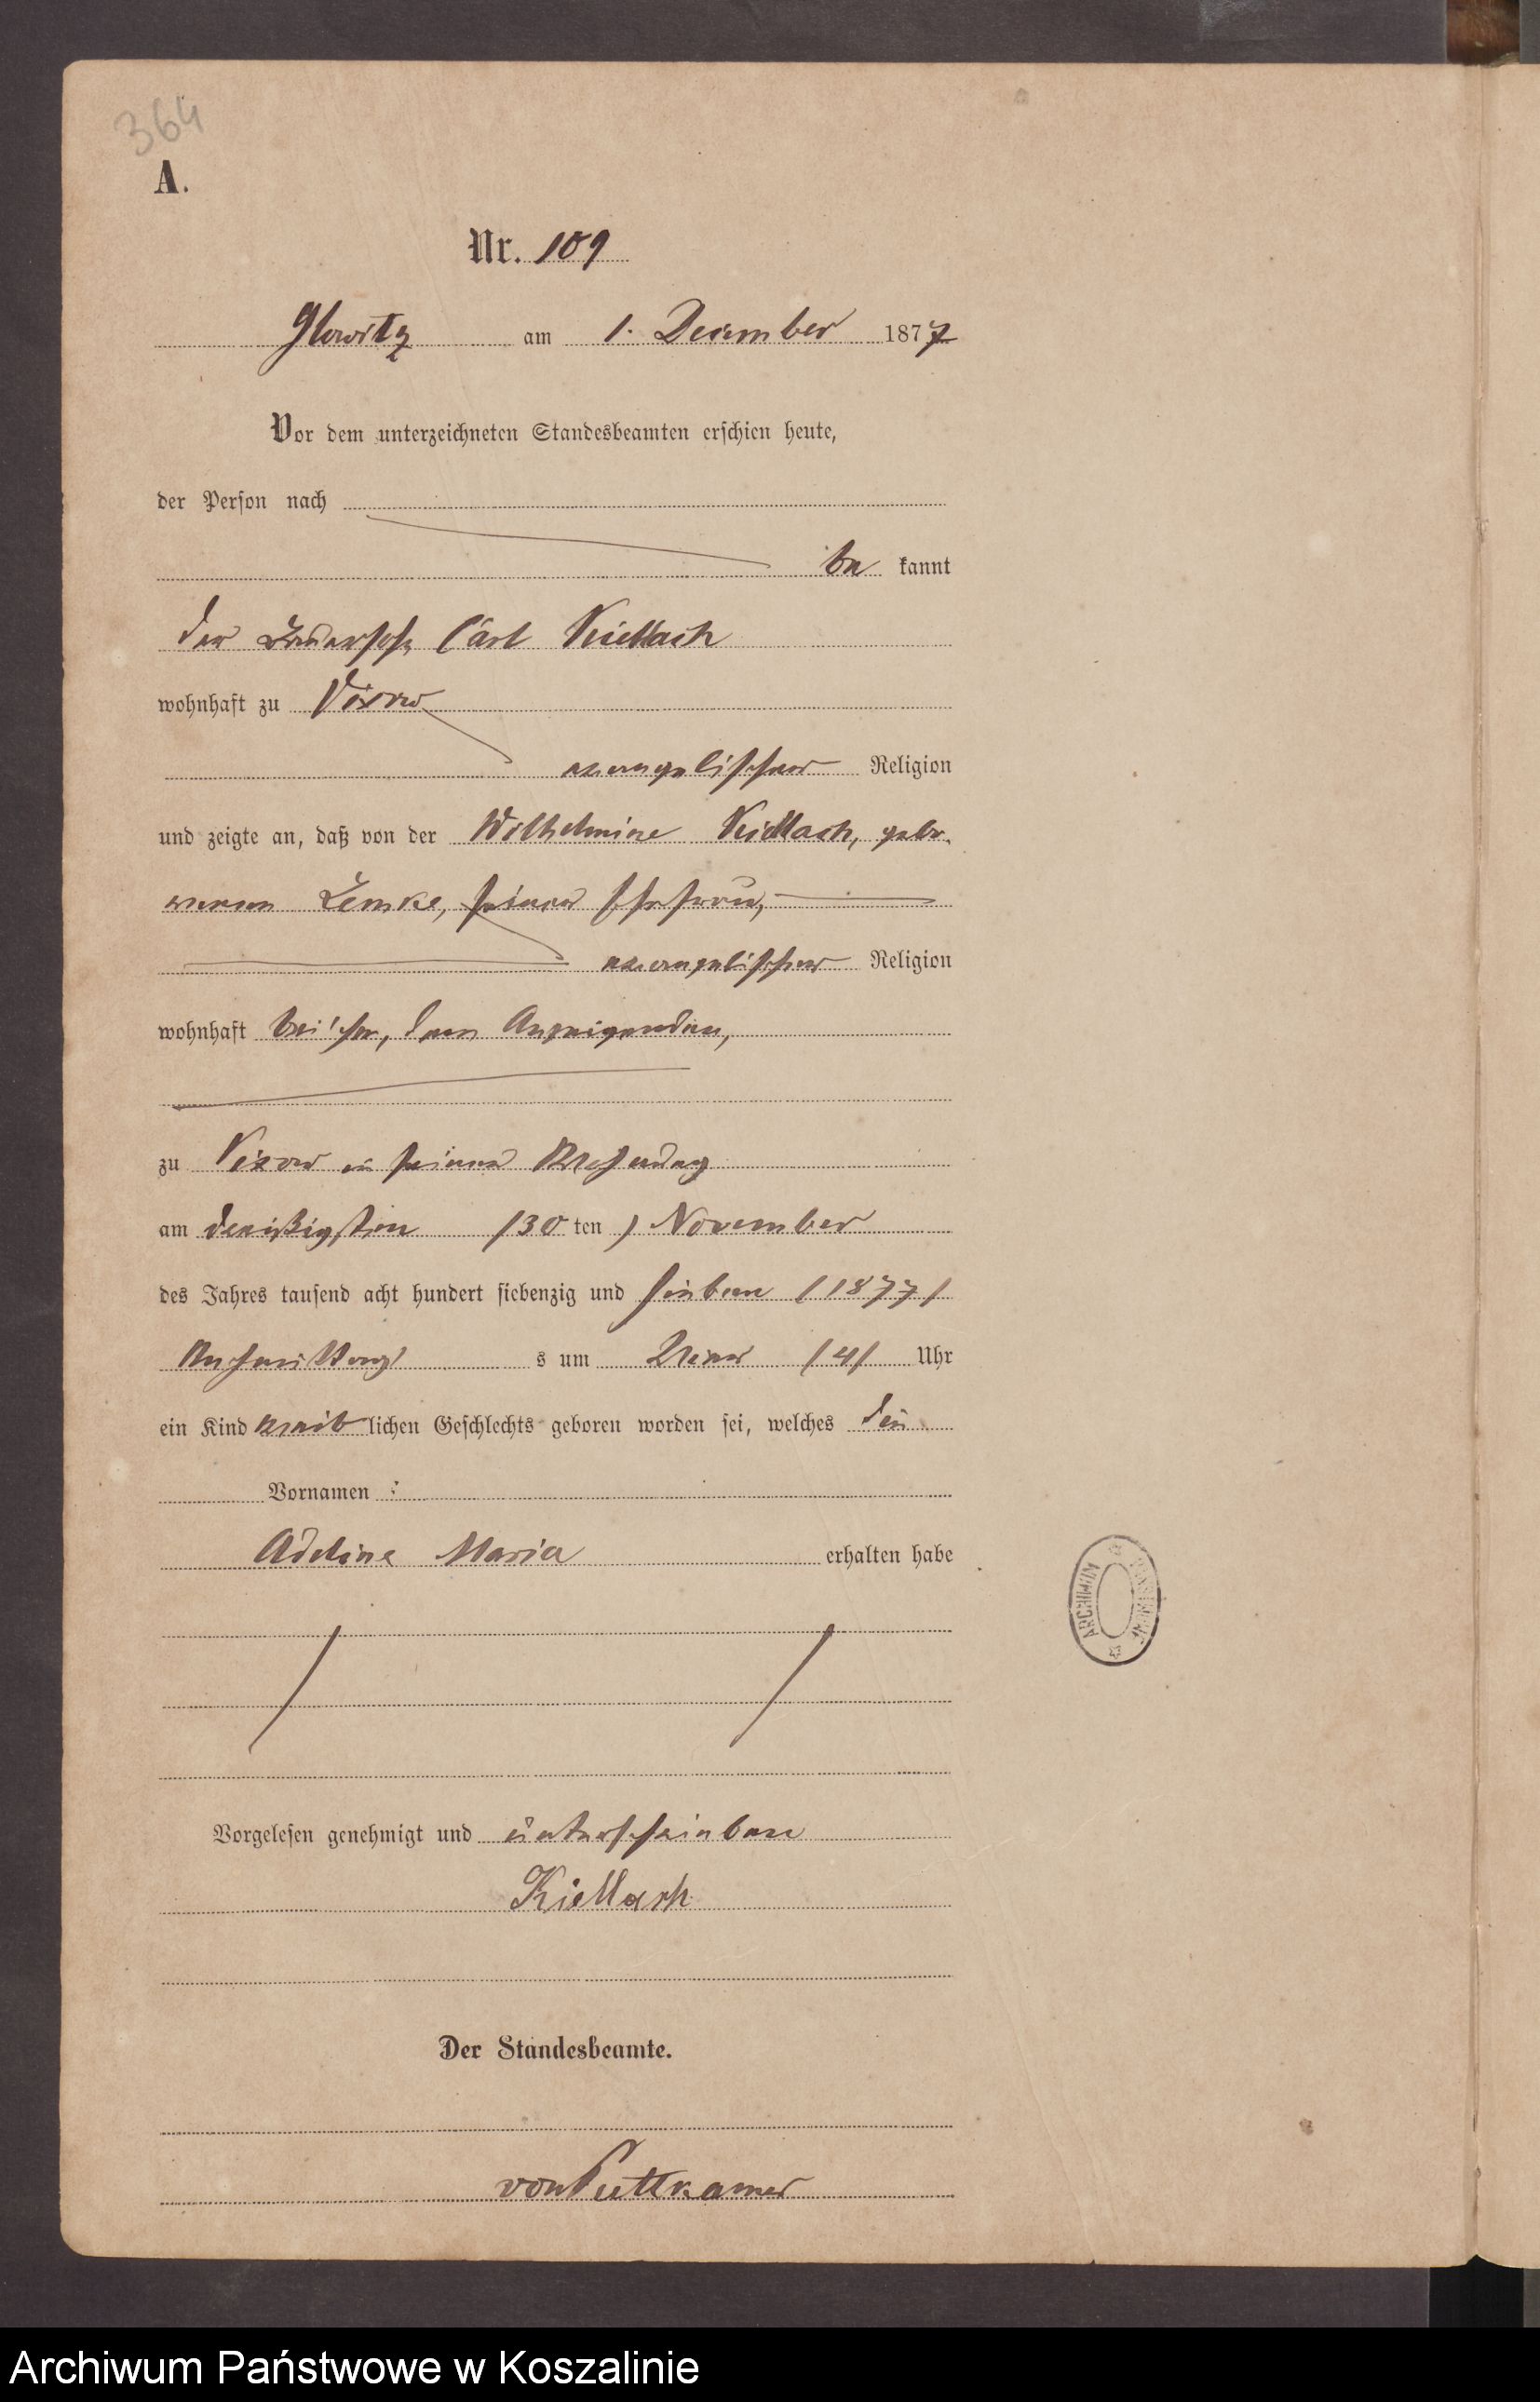 364
A.
Nr. 109
Glowitz am 1. December 1877
Vor dem unterzeichneten Standesbeamten erschien heute,
der Person nach
be kannt
der Carl Kiellach
wohnhaft zu Vixow
evangelischer Religion
und zeigte an, daß von der Wilhelmine Kiellach, gebo-
renen Lemke, seiner Ehefrau,
evangelischer Religion
wohnhaft bei ihm, dem Anzeigenden,
zu Vixow in seiner Wohnung
am dreißigsten /30 ten / November
des Jahres tausend acht hundert siebenzig und sieben /1877/
Nachmittag s um Vier /4/ Uhr
ein Kind weib lichen Geschlechts geboren worden sei, welches die
Vornamen :
Adeline Maria erhalten habe
Vorgelesen genehmigt und unterschrieben
Kiellash
Der Standesbeamte.
von Puttkamer
ARCHIWUM
Archiwum Państwowe w Koszalinie